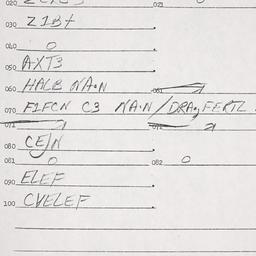 020 021
030 Z1B+
040 O
050 AXT3
060 HALB NA·N 061
070 F1FCN C3 NA·N/DRAgFERTL.
071 072
080 CEJN
081 O 082 O
090 ELEF
100 CVELEF